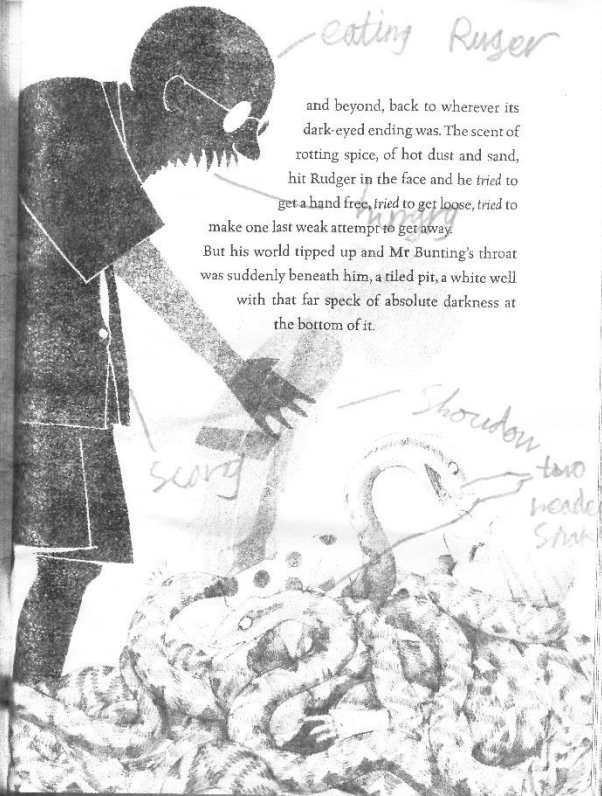 eating Ruger
and beyond, back to wherever its
dark-eyed ending was. The scent of
rotting spice, of hot dust and sand,
hit Rudger in the face and he tried to
get a hand free, tried to get loose, tried to
hungry
make one last weak attempt to get away.
But his world tipped up and Mr Bunting's throat
was suddenly beneath him, a tiled pit, a white well
with that far speck of absolute darkness at
the bottom of it.
Shoudow
scary
two
heade
Snak